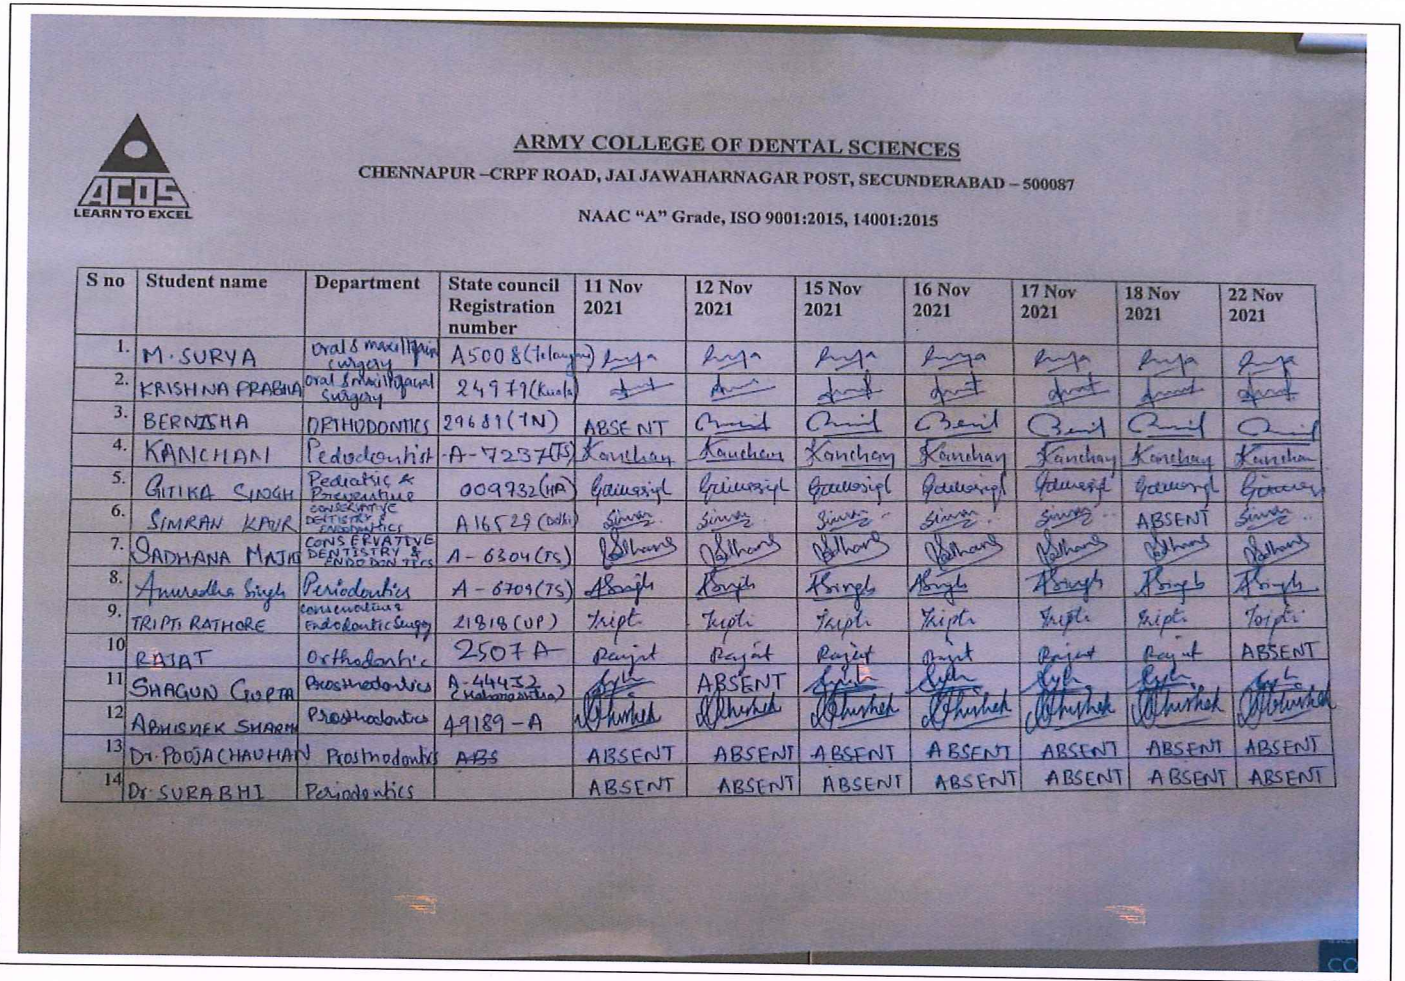 ACDS
LEARN TO EXCEL
ARMY COLLEGE OF DENTAL SCIENCES
CHENNAPUR –CRPF ROAD, JAI JAWAHARNAGAR POST, SECUNDERABAD – 500087
NAAC “A” Grade, ISO 9001:2015, 14001:2015
S no Student name Department State council Registration number 11 Nov 2021 12 Nov 2021 15 Nov 2021 16 Nov 2021 17 Nov 2021 18 Nov 2021 22 Nov 2021
1. M. SURYA Oral & maxillofacial surgery A5008 (Telangana)
2. KRISHNA PRABHA Oral & maxillofacial surgery 24979 (Kerala)
3. BERNISHA ORTHODONTICS 29681 (TN) ABSENT
4. KANCHAN Pedodontist A-7237 (TS) Kanchan Kanchan Kanchan Kanchan Kanchan Kanchan Kanchan
5. GITIKA SINGH Pediatric & Preventive 009732 (HA)
6. SIMRAN KAUR CONSERVATIVE DENTISTRY & ENDODONTICS A16529 (Delhi) Simran Simran Simran Simran Simran ABSENT Simran
7. SADHANA CONSERVATIVE DENTISTRY & ENDODONTICS A-6304 (TS)
8. Anuradha Singh Periodontics A-6709 (TS) ASingh ASingh ASingh ASingh ASingh ASingh ASingh
9. TRIPTI RATHORE Conservative Endodontic 21818 (UP) Tripti Tripti Tripti Tripti Tripti Tripti Tripti
10 RAJAT Orthodontic 2507 A Rajat Rajat Rajat Rajat Rajat Rajat ABSENT
11 SHAGUN GUPTA Prosthodontics A-44452 (Maharashtra) ABSENT
12 ABHISHEK SHARM Prosthodontics 49189-A Abhishek Abhishek Abhishek Abhishek Abhishek Abhishek Abhishek
13 Dr. POOJA CHAUHAN Prosthodontics ABS ABSENT ABSENT ABSENT ABSENT ABSENT ABSENT ABSENT
14 Dr. SURABHI Periodontics ABSENT ABSENT ABSENT ABSENT ABSENT ABSENT ABSENT
CO